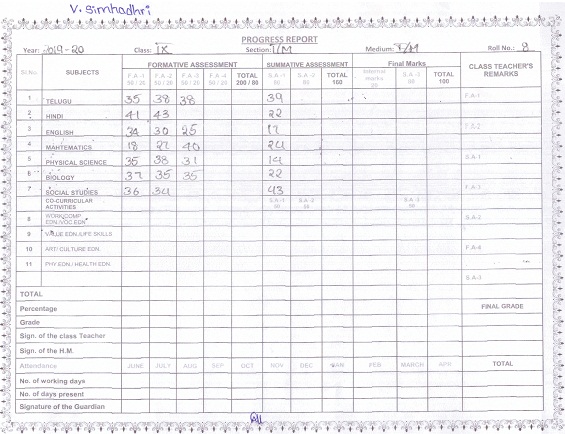 V. Simhadhri
PROGRESS REPORT
Year: 2019-20 Class: IX Section: T/M Medium: T/M Roll No.: 8
Sl.No. SUBJECTS FORMATIVE ASSESSMENT SUMMATIVE ASSESSMENT Final Marks CLASS TEACHER'S REMARKS
F.A.-1 50 / 20 F.A.-2 50 / 20 F.A.-3 50 / 20 F.A.-4 50 / 20 TOTAL 200 / 80 S.A.-1 80 S.A.-2 80 TOTAL 160 Internal marks 20 S.A.-3 80 TOTAL 100
1 TELUGU 35 38 38 39 F.A-1
2 HINDI 41 43 22
3 ENGLISH 34 30 25 17 F.A-2
4 MAHTEMATICS 18 27 40 24
5 PHYSICAL SCIENCE 35 38 31 14 S.A-1
6 BIOLOGY 37 35 35 22
7 SOCIAL STUDIES 36 34 43 F.A-3
CO-CURRICULAR ACTIVITIES S.A.-1 50 S.A.-2 50 S.A.-3 50
8 WORK/COMP. EDN./VOC EDN. S.A-2
9 VALUE EDN./LIFE SKILLS
10 ART/ CULTURE EDN. F.A-4
11 PHY.EDN / HEALTH EDN.
S.A-3
TOTAL
Percentage FINAL GRADE
Grade
Sign. of the class Teacher
Sign. of the H.M.
Attendance JUNE JULY AUG SEP OCT NOV DEC JAN FEB MARCH APR TOTAL
No. of working days
No. of days present
Signature of the Guardian